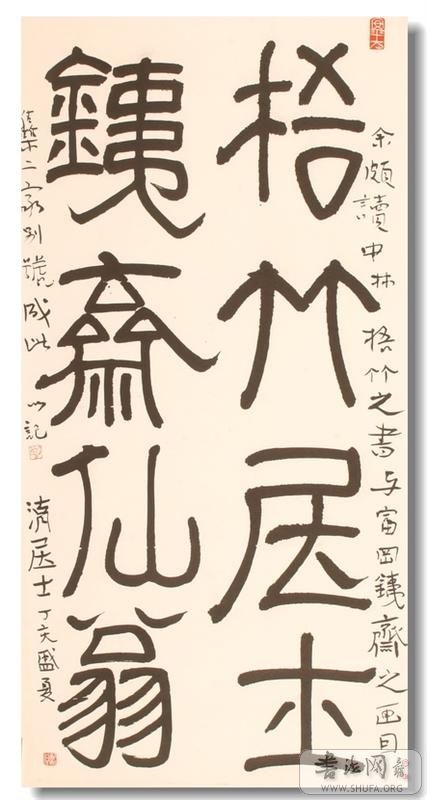 余頗讀中林梧竹之書与富岡銕齋之画
梧竹居士
銕斎仙翁
二家別號成此以記
居士丁亥盛夏
書法网
WWW.SHUFA.ORG